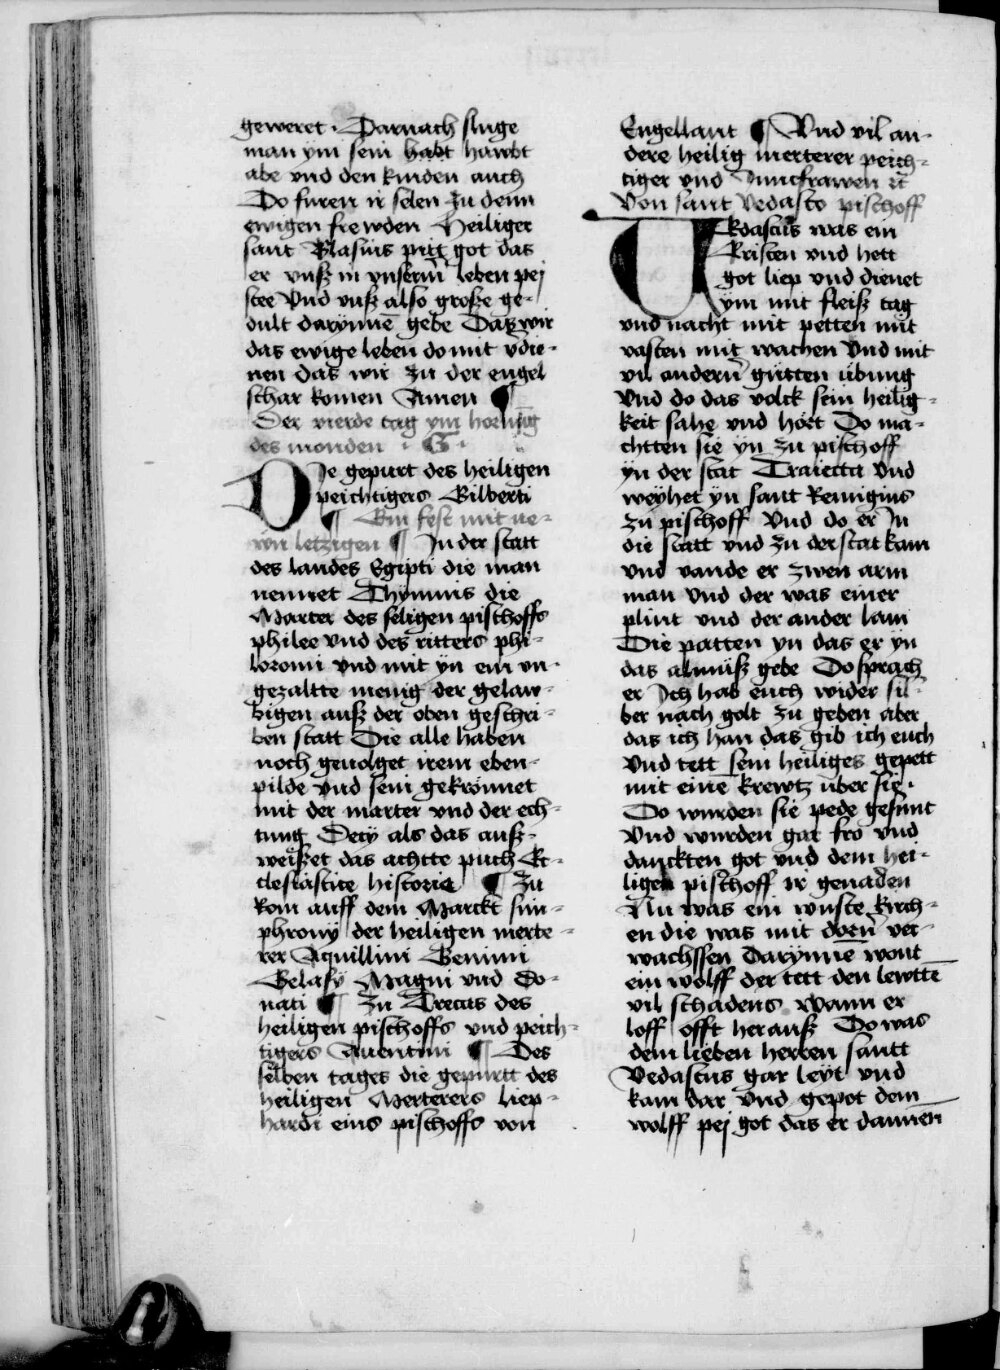 geweret · Darnach sluge
man ym sein habt hawbt
abe vnd den kinden auch
Do furen ir selen zu dem
ewigen frewden Heiliger
sant Blasius pitt got das
er vnß in vnserm leben pej
stee Vnd vnß also große ge-
dult darynnē gebe Daz wir
das ewige leben do mit vdie-
nen das wir zu der engel
schar komen Amen ¶
Der vierde tag ym hornūg
des monden · G ·
DJe gepurt des heiligen
peichtigers Gilberti
¶ Ein fest mit ne-
wn letzigen ¶ Jn der statt
des landes Egipti die man
nennet Thymnis die
Marter des seligen pischoffs
philee vnd des ritters phi-
loromi vnd mit yn ein vn-
gezaltte menig der gelaw-
bigen auß der oben geschri-
ben statt Die alle haben
noch geuolget irem eben-
pilde vnd sein gekrönnet
mit der marter vnd der ech-
tung Decy als das auß-
weißet das achtte puch Ec-
clesiastice historie ¶ Zu
Rom auff dem Marckt sim-
phrony der heiligen merte-
rer Aquillini Gemini
Gelasy Magni vnd Do-
nati ¶ Zu Trecas des
heiligen pischoffs vnd peich-
tigers Auentini ¶ Des
selben tages die gepurtt des
heiligen Merterers liep-
hardi eins pischoffs von
Engellant ¶ Vnd vil an-
dere heilig merterer peich-
tiger vnd Junckfrawen ꝛc̄
Von sant Vedasto pischoff
VEdastus was ein
Kristen vnd hett
got liep vnd dienet
ym mit fleiß tag
vnd nacht mit petten mit
vasten mit wachen Vnd mit
vil andern gutten übung
Vnd do das volck sein heilig-
keit sahe vnd hört Do ma-
chtten sie yn zu pischoff
yn der stat Traiecta Vnd
weyhet yn sant Remigius
zu pischoff Vnd do er Jn
die statt vnd zu der stat kam
vnd vande er zwen arm
man Vnd der was einer
plint vnd der ander lam
Die patten yn das er yn
das almuß gebe Do sprach
er Jch hab euch wider sil-
ber nach golt zu geben aber
das ich han das gib ich euch
Vnd tett sein heiliges gepett
mit eine krewtz über sie ·
Do wurden sie pede gesunt
Vnd wurden gar fro vnd
danckten got vnd dem hei-
ligen pischoff ir genaden
Nu was ein wuste kirch-
en die was mit dorn ver-
wachssen Darynnē wont
ein wolff der tett den lewttē
vil schadens Wann er
loff offt herauß Do was
dem lieben herren santt
Vedastus gar leyt vnd
kam dar Vnd gepot dem
wolff pej got das er dannen